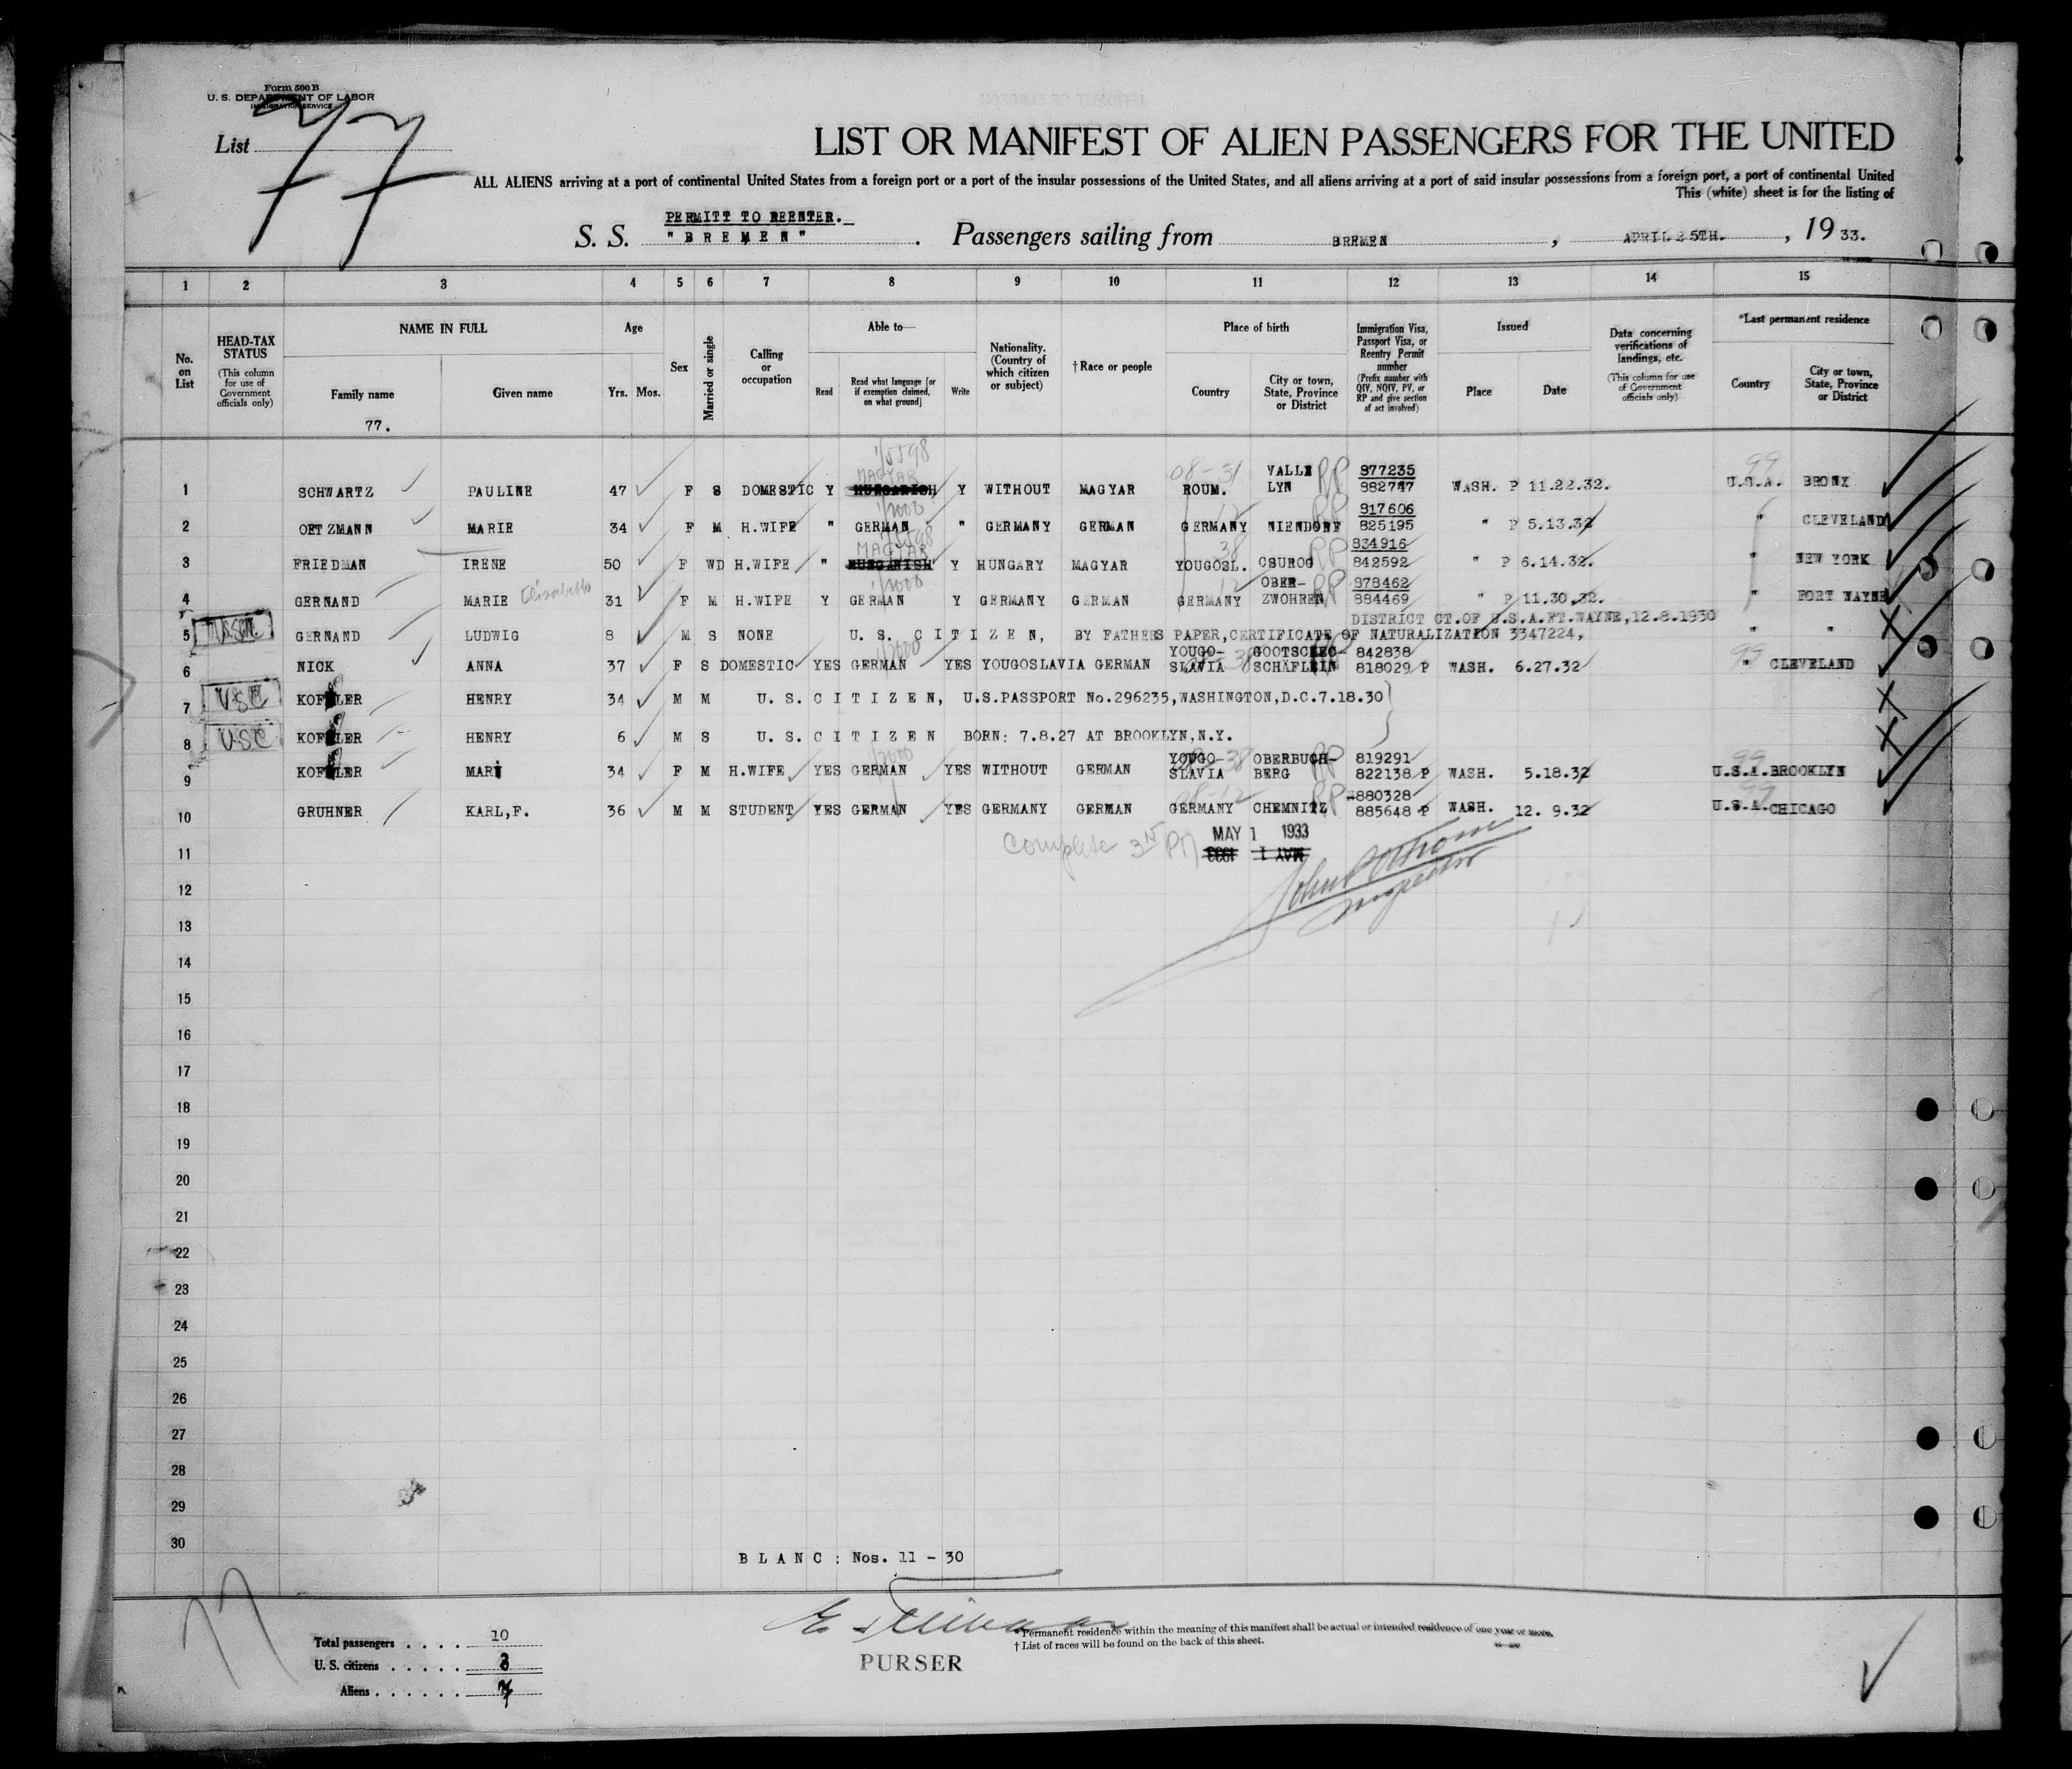 Form 500 B
U. S. DEPARTMENT OF LABOR
IMMIGRATION SERVICE
List 77
LIST OR MANIFEST OF ALIEN PASSENGERS FOR THE UNITED
ALL ALIENS arriving at a port of continental United States from a foreign port or a port of the insular possessions of the United States, and all aliens arriving at a port of said insular possessions from a foreign port, a port of continental United
This (white) sheet is for the listing of
PERMITT TO REENTER.
S. S. "BREMEN". Passengers sailing from BREMEN, APRIL 25TH., 1933.
1 2 3 4 5 6 7 8 9 10 11 12 13 14 15
No. on List
HEAD-TAX STATUS (This column for use of Government officials only)
NAME IN FULL Family name Given name
77.
Age Yrs. Mos.
Sex
Married or single
Calling or occupation
Able to— Read Read what language [or if exemption claimed, on what ground] Write
Nationality. (Country of which citizen or subject)
† Race or people
Place of birth Country City or town, State, Province or District
Immigration Visa, Passport Visa, or Reentry Permit number (Prefix number with QIV, NQIV, PV, or RP and give section of act involved)
Issued Place Date
Data concerning verifications of landings, etc. (This column for use of Government officials only)
*Last permanent residence Country City or town, State, Province or District
1 SCHWARTZ PAULINE 47 F S DOMESTIC Y MAGYAR Y WITHOUT MAGYAR ROUM. VALLE LYN RP 877235 882747 WASH. P 11.22.32. U.S.A. BRONX
2 OETZMANN MARIE 34 F M H.WIFE " GERMAN " GERMANY GERMAN GERMANY NIENDORF RP 817606 825195 " P 5.13.32 " CLEVELAND
3 FRIEDMAN IRENE 50 F WD H.WIFE " MAGYAR Y HUNGARY MAGYAR YOUGOSL. CSUROG RP 834916 842592 " P 6.14.32. " NEW YORK
4 GERNAND MARIE Elisabetha 31 F M H.WIFE Y GERMAN Y GERMANY GERMAN GERMANY OBER-ZWOHREN RP 878462 884469 " P 11.30.32. " FORT WAYNE
DISTRICT CT.OF U.S.A.FT.WAYNE,12.8.1930
5 GERNAND LUDWIG 8 M S NONE U. S. CITIZEN, BY FATHERS PAPER,CERTIFICATE OF NATURALIZATION 3347224, " "
6 NICK ANNA 37 F S DOMESTIC YES GERMAN YES YOUGOSLAVIA GERMAN YOUGO-SLAVIA GOOTSCHEC-SCHÄFLEIN 842838 818029 P WASH. 6.27.32 " CLEVELAND
7 USC KOFLER HENRY 34 M M U. S. CITIZEN, U.S.PASSPORT No.296235,WASHINGTON,D.C.7.18.30
8 USC KOFLER HENRY 6 M S U. S. CITIZEN BORN: 7.8.27 AT BROOKLYN,N.Y.
9 KOFLER MARI 34 F M H.WIFE YES GERMAN YES WITHOUT GERMAN YOUGO-SLAVIA OBERBUCH-BERG RP 819291 822138 P WASH. 5.18.32 U.S.A. BROOKLYN
10 GRUHNER KARL,F. 36 M M STUDENT YES GERMAN YES GERMANY GERMAN GERMANY CHEMNITZ RP 880328 885648 P WASH. 12. 9.32 U.S.A. CHICAGO
Complete MAY 1 1933
11
12 Inspector
13
14
15
16
17
18
19
20
21
22
23
24
25
26
27
28
29
30
BLANC: Nos. 11 - 30
77
Total passengers . . . . 10
U. S. citizens . . . . . 3
Aliens . . . . . . 7
PURSER
*Permanent residence within the meaning of this manifest shall be actual or intended residence of one year or more.
† List of races will be found on the back of this sheet.